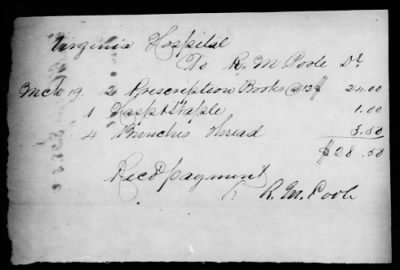 Virginia Hospital
To R. M. Poole Dr.
Mch 19. 2 Prescription Books @ 12$ 24.00
1 Hasp & Staple 1.00
4 Bunches thread 3.50
$28.50
Recd payment
R. M. Poole